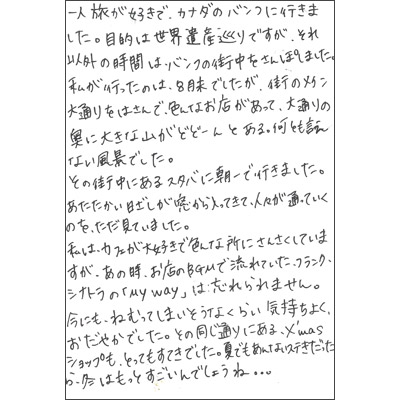 一人旅が好きで、カナダのバンフに行きま
した。目的は世界遺産巡りですが、それ
以外の時間は、バンフの街中をさんぽしました。
私が行ったのは、8月末でしたが、街のメイン
大通りをはさんで、色んなお店があって、大通りの
奥に大きな山がどどーんとある。何とも言え
ない風景でした。
その街中にあるスタバに朝一で行きました。
あたたかい日ざしが窓から入ってきて、人々が通っていく
のを、ただ見ていました。
私は、カフェが大好きで色んな所にさんさくしていま
すが、あの時、お店のBGMで流れていた、フランク・
シナトラの「My way」は忘れられません。
今にも、ねむってしまいそうなくらい気持ちよく、
おだやかでした。その同じ通りにある、X'mas
ショップも、とってもすてきでした。夏でもあんなにステキだった
ら、冬はもっとすごいんでしょうね...